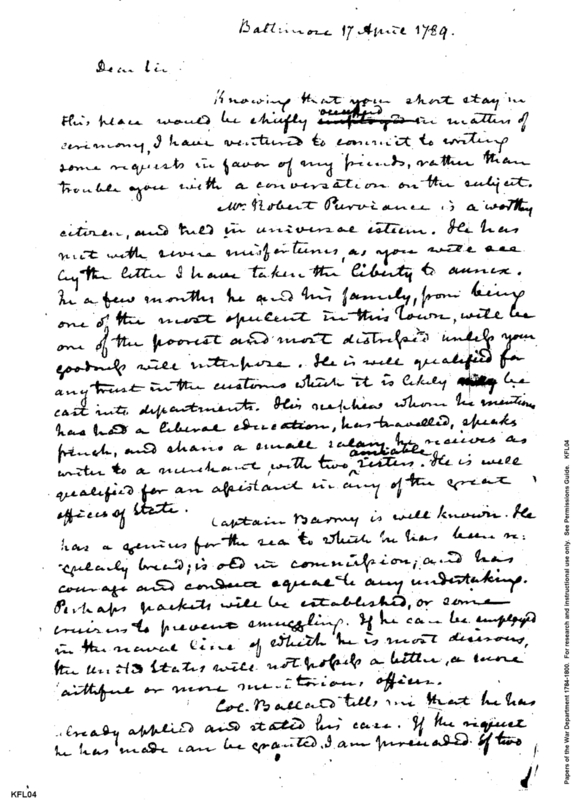 Baltimore 17 April 1789.
Dear Sir
Knowing that your short stay in
this place would be chiefly occupied employed in matters of
ceremony, I have ventured to commit to writing
some requests in favor of my friends, rather than
trouble you with a conversation on the subject.
Mr. Robert Purviance is a worthy
citizen, and held in universal esteem. He has
met with severe misfortunes, as you will see
by the letter I have taken the liberty to annex.
In a few months he and his family, from being
one of the most opulent in this town, will be
one of the poorest and most distressed unless your
goodness will interpose. He is well qualified for
any trust in the customs which it is likely may be
cast into departments. His nephew whom he mentions
has had a liberal education, has travelled, speaks
french, and shares a small salary he receives as
writer to a merchant, with two amiable sisters. He is well
qualified for an assistant in any of the great
offices of State.
Captain Barney is well known. He
has a genius for the sea to which he has been re-
gularly bread; is old in commission; and has
courage and conduct equal to any undertaking.
Perhaps packets will be established, or some
cruizers to prevent smuggling. If he can be employed
in the naval line of which he is most desirous,
the United States will not possess a better, a more
aithful or more meritorious officer.
Col. Ballard tells me that he has
lready applied and stated his case. If the request
he has made can be granted I am persuaded of two
KFL04
Papers of the War Department 1784-1800. For research and instructional use only. See Permissions Guide. KFL04